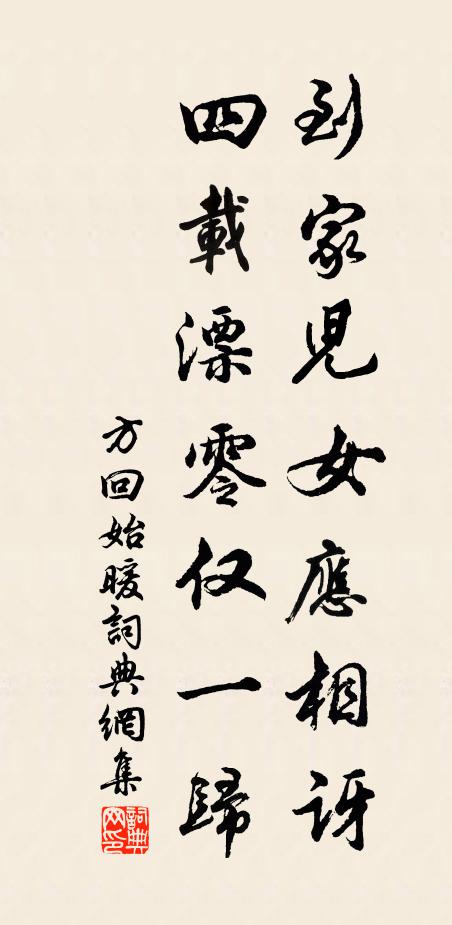 到家児女應相訝
四載漂零仅一歸
方回始暖詞典網集
詞典
网印